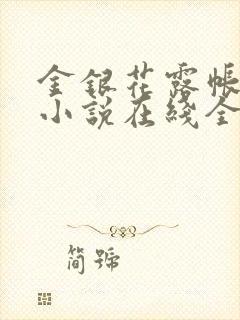 金銀花露帳
小說在綫全
簡號